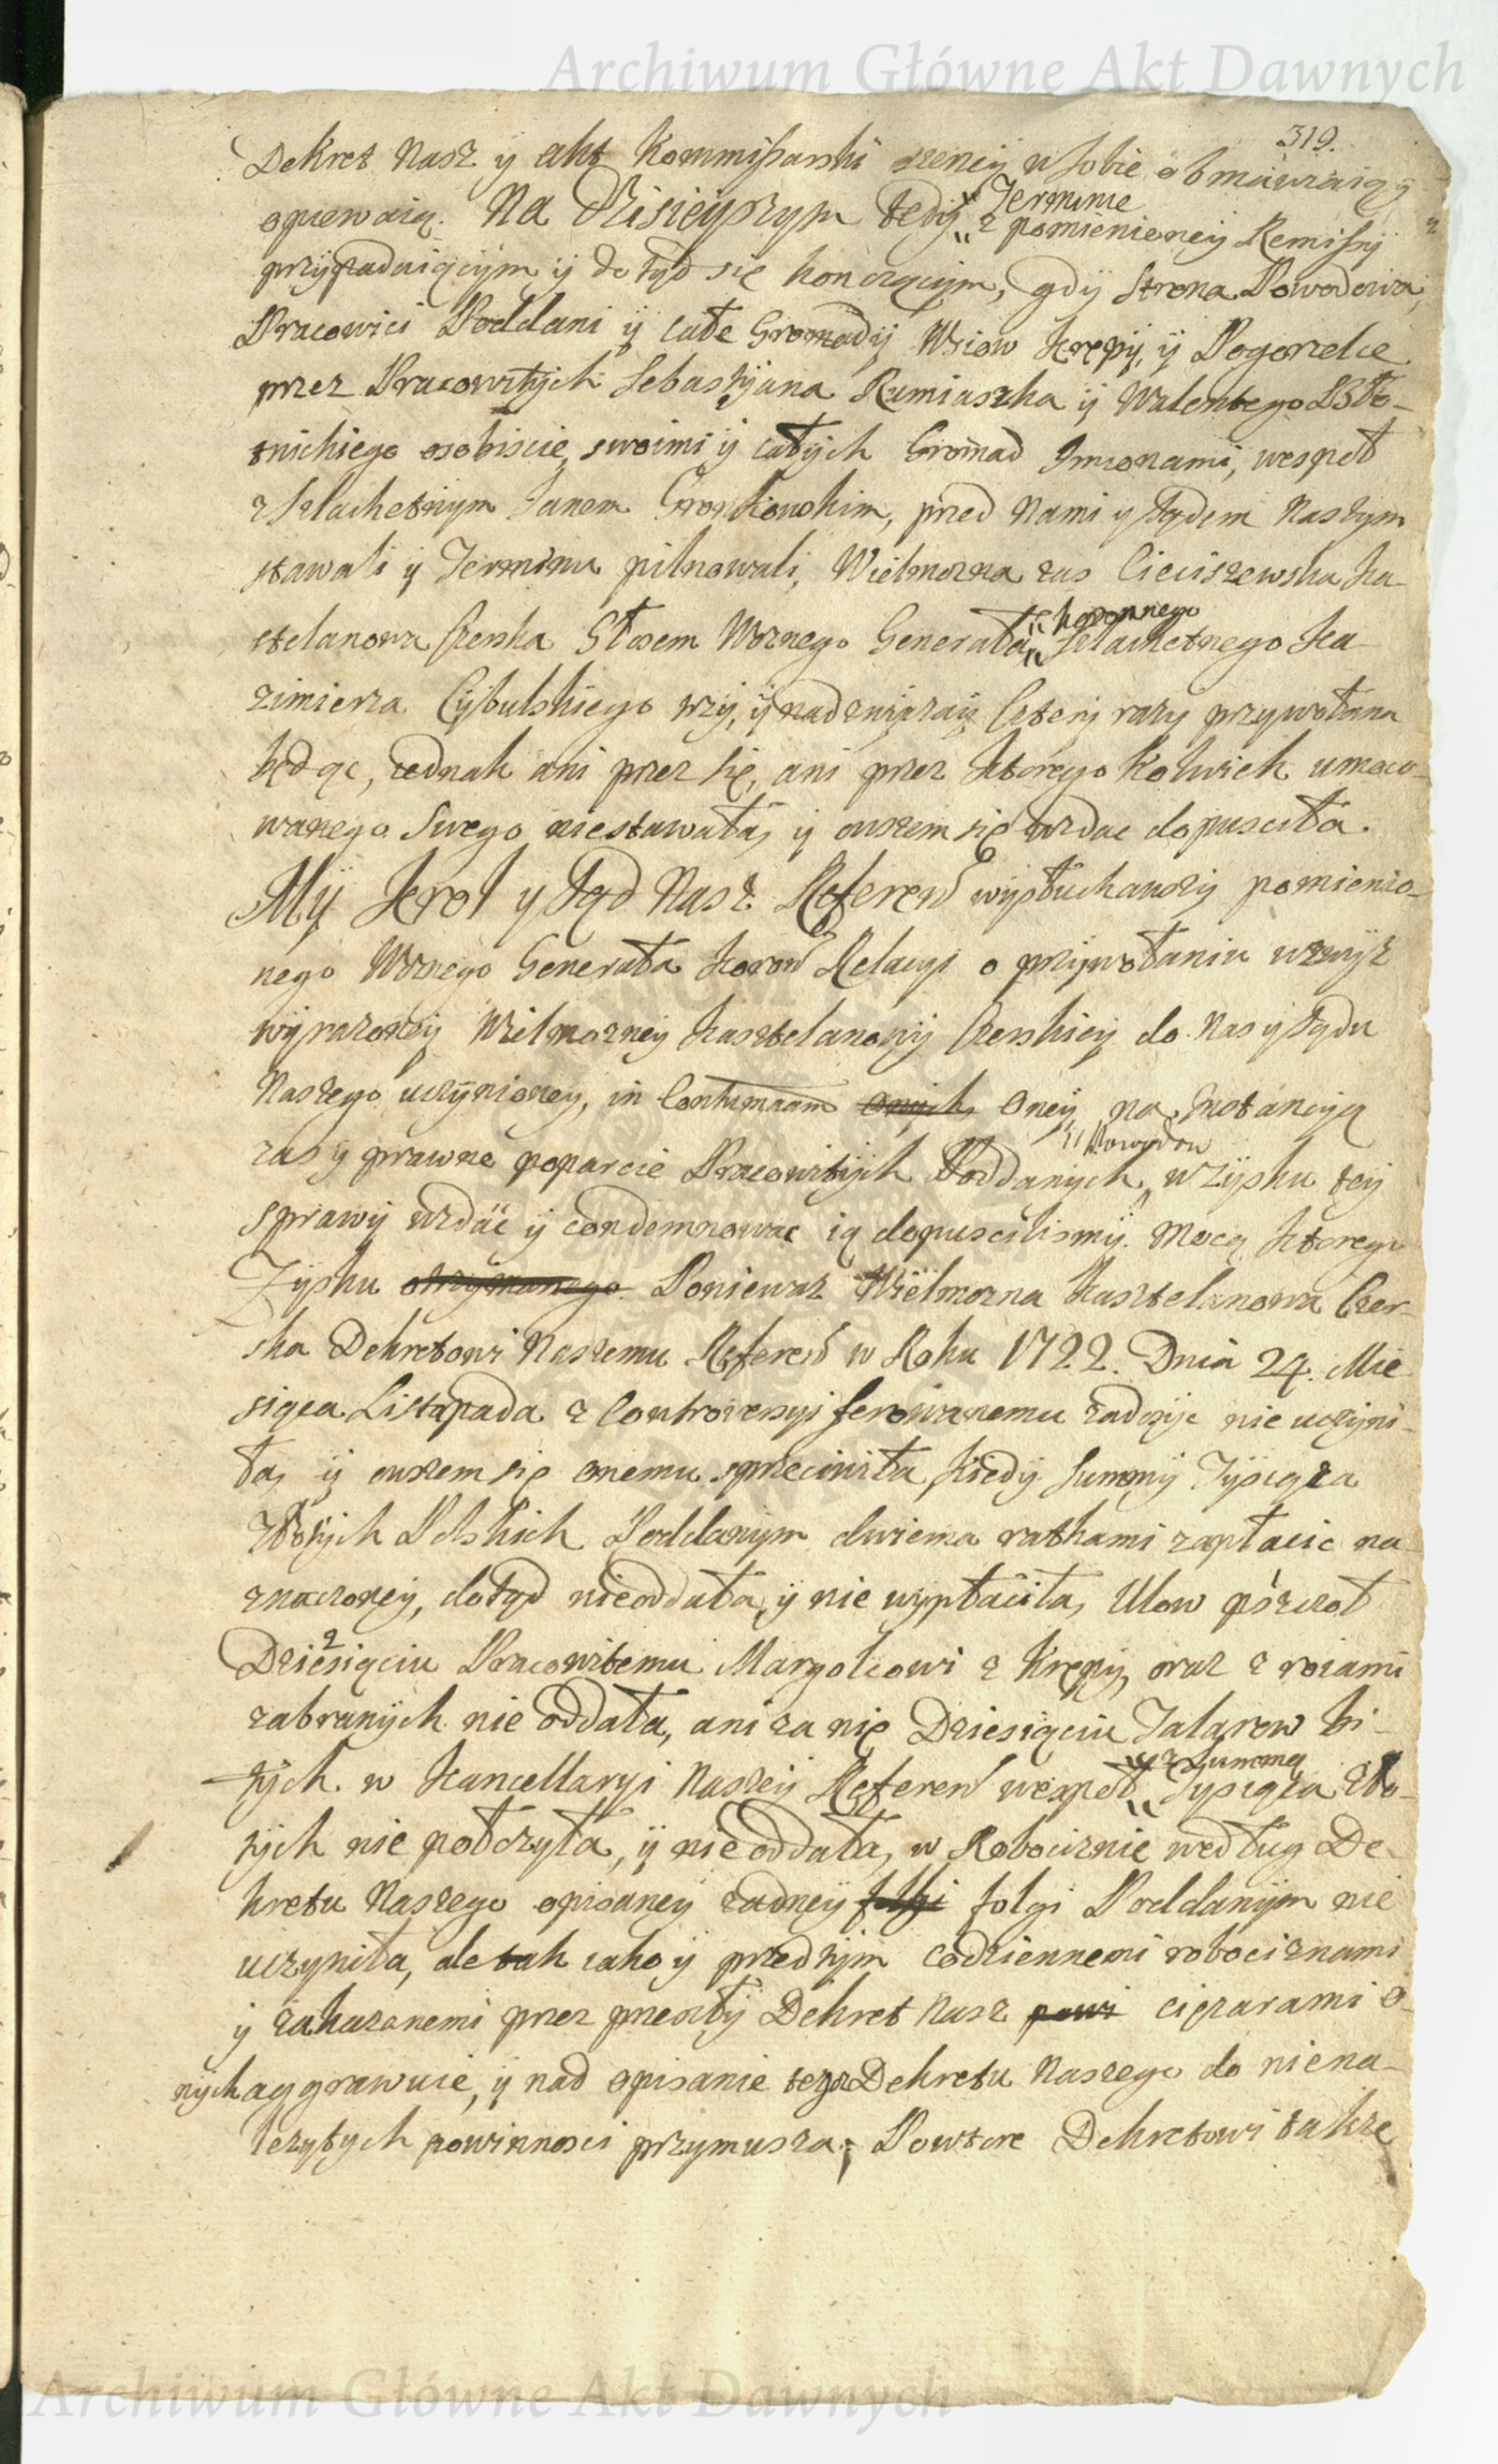 Archiwum Główne Akt Dawnych
319.
Dekret Nasz y akt Kommissarski szerzey w sobie obmawiaią y
opiewaią. Na Dzisieyszym tedy Terminie z pomienioney Remissy
przypadaiącym y do tąd się konczącym, gdy Strona Powodowa,
Pracowici Poddani y całe Gromady Wsiow Krępy y Pogorzelce
przez Pracowitych Sebastyana Rumiaszka y Walentego
osobiscie, swoimi y całych Gromad Imionami, wespoł
z Szlachetnym Janem Gronkowskim, przed Nami y Sądem Naszym
stawali y Terminu pilnowali, Wielmozna zas Cieciszewska Ka-
sztelanowa Czerska Głosem Woznego Generała Koronnego Szlachetnego Ka-
zimierza Cybulskiego trzy, y nadzwyczay Cztery razy przywołana
będąc, iednak ani przez się, ani przez ktorego kolwiek umoco-
wanego Swego niestawała, y owszem się wzdac dopusciła.
My Krol y Sąd Nasz Referen wysłuchawszy pomienio-
nego Woznego Generała Koron Relacyi o przywołaniu wzwyż
wyrazoney Wielmozney Kasztelanowy Czerskiey do Nas y Sądu
Naszego uczynioney, in Contumaciam onych Oney, na Instancyą
zas y prawne poparcie Pracowitych Poddanych Powodow, w Zysku tey
sprawy wzdać y condemnowac ią dopuscilismy. Mocą ktorego
Zysku otrzymanego Poniewaz Wielmozna Kasztelanowa Czer-
ska Dekretowi Naszemu Referen w Roku 1722. Dnia 24. Mie
siąca Listapada z Controversyi ferowanemu zadosyc nie uczyni-
ła, y owszem się onemu sprzeciwiła, kiedy Summy Tysiąca
Złotych Polskich Poddanym dwiema ratkami zapłacic na
znaczoney, dotąd nieoddała, y nie wypłaciła, Ulow pszczoł
Dziesięciu Pracowitemu Margolcowi z Krępy, oraz z roiami
zabranych nie oddała, ani za nie Dziesięciu Talarow bi-
tych w Kancellaryi Naszey Referen wespoł z Summą Tysiąca Zło-
tych nie połozyła, y nie oddała, w Robociznie według De-
kretu Naszego opisaney zadney folgi folgi Poddanym nie
uczyniła, ale tak iako y przedtym codziennemi robociznami
y zakazanemi przez przeszły Dekret Nasz powi cięzarami o-
nych aggrawuie, y nad opisanie tegoz Dekretu Naszego do niena-
lezytych powinnosci przymusza; Powtore Dekretowi takze
Archiwum Główne Akt Dawnych